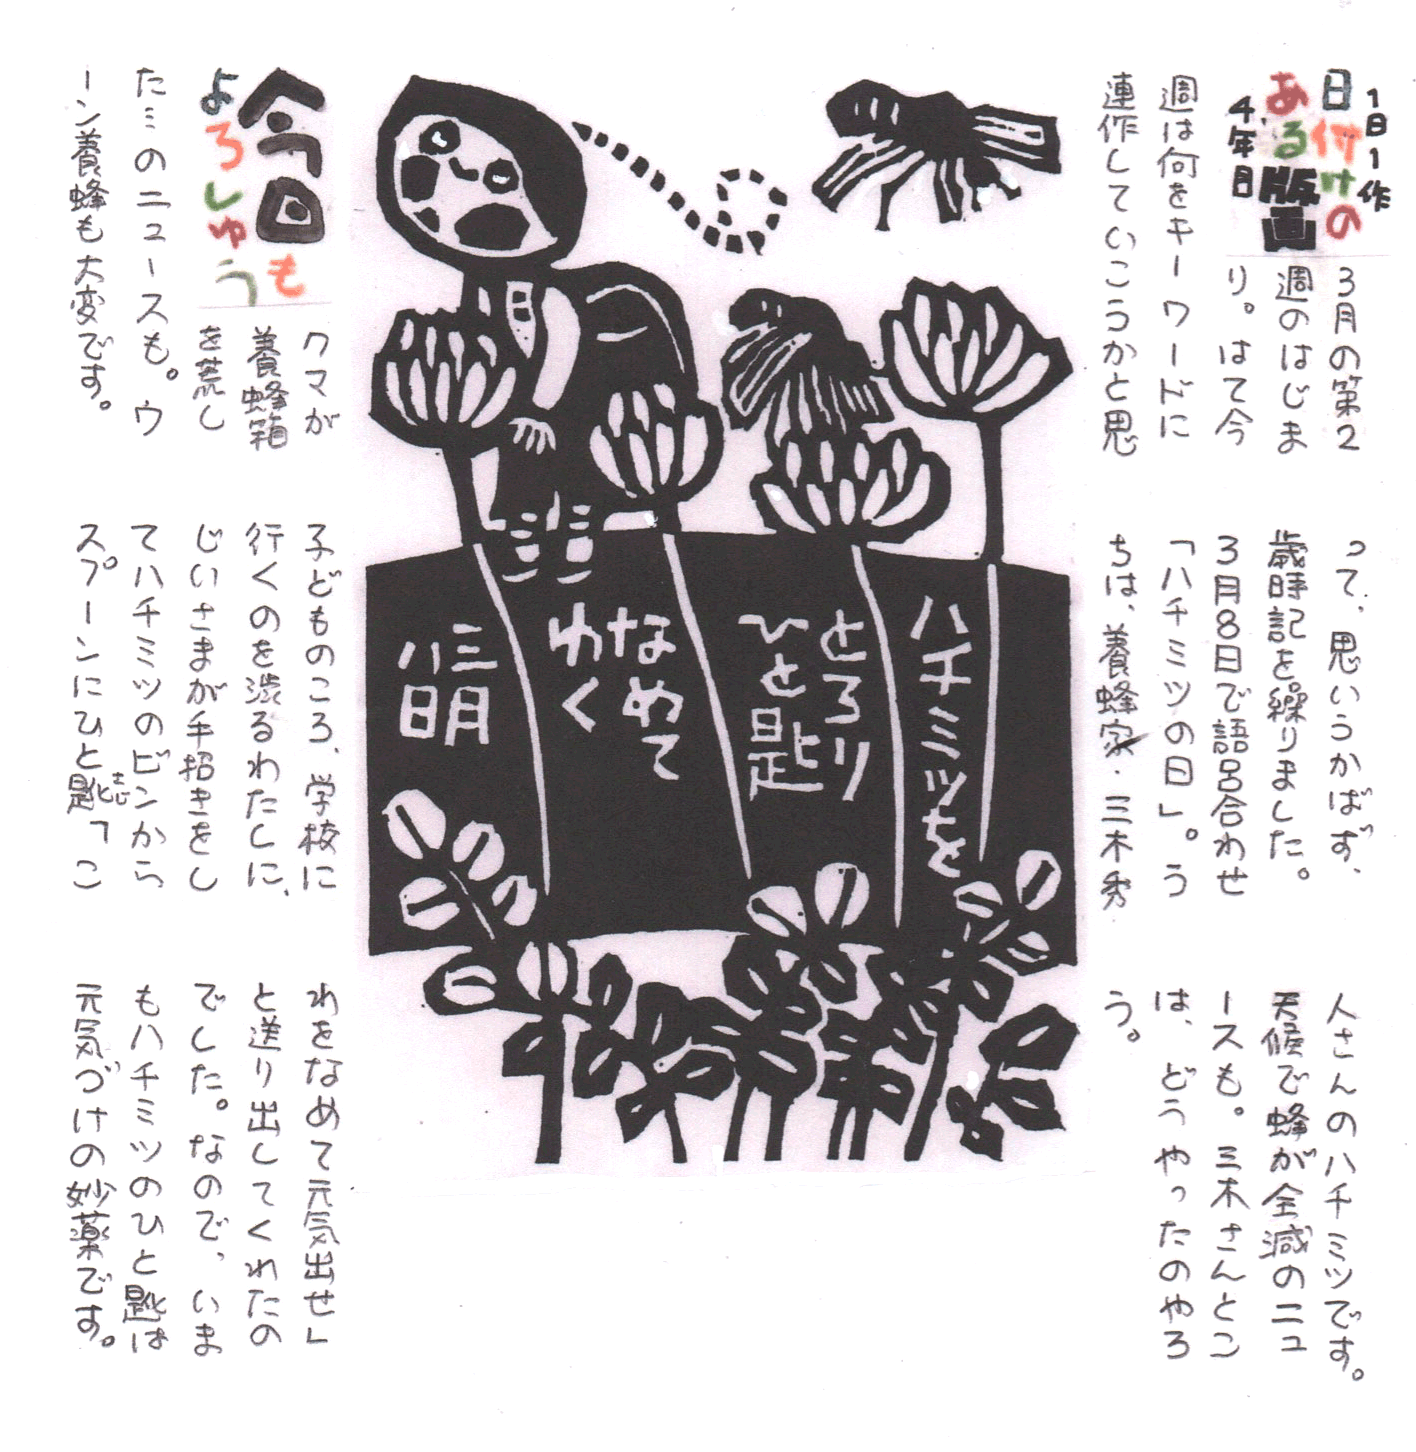 1日1作
日付けの
ある版画
4年目
3月の第2
週のはじま
り。はて今
週は何をキーワードに
連作していこうかと思
って、思いうかばず、
歳時記を繰りました。
3月8日で語呂合わせ
「ハチミツの日」。う
ちは、養蜂家・三木秀
人さんのハチミツです。
天候で蜂が全滅のニュ
ースも。三木さんとこ
は、どうやったのやろ
う。
ハチミツを
とろり
ひと匙
なめて
ゆく
三月
八日
今日も
よろしゅう
クマが
養蜂箱
を荒し
た…のニュースも。ウ
ーン養蜂も大変です。
子どものころ、学校に
行くのを渋るわたしに、
じいさまが手招きをし
てハチミツのビンから
スプーンにひと匙「こ
れをなめて元気出せ」
と送り出してくれたの
でした。なので、いま
もハチミツのひと匙は
元気づけの妙薬です。